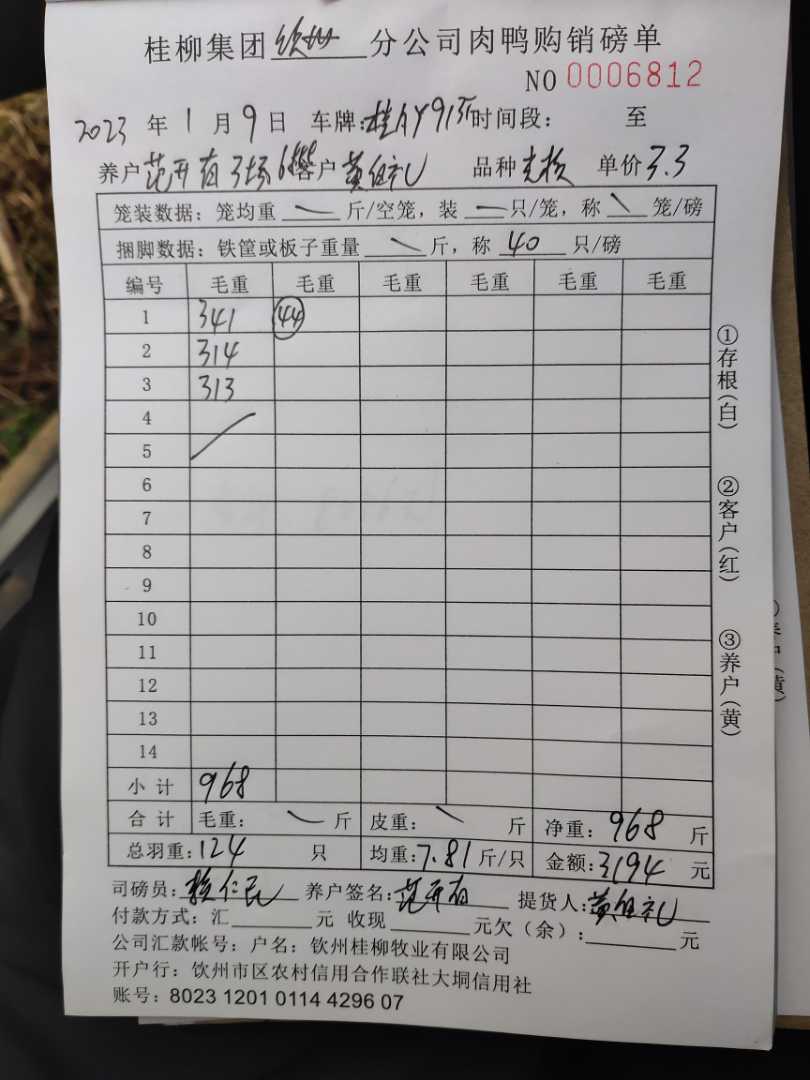 桂柳集团钦州分公司肉鸭购销磅单
NO 0006812
2023年1月9日 车牌:桂 时间段: 至
养户 范开有3场 客户 黄组礼 品种 单价3.3
笼装数据: 笼均重 斤/空笼, 装 只/笼, 称 笼/磅
捆脚数据: 铁筐或板子重量 斤, 称 40 只/磅
编号 毛重 毛重 毛重 毛重 毛重 毛重
1 341 44
2 314
3 313
4
5
6
7
8
9
10
11
12
13
14
小计 968
合计 毛重: 斤 皮重: 斤 净重: 968 斤
总羽重: 124 只 均重: 7.81 斤/只 金额: 3194 元
司磅员: 仁民 养户签名: 范开有 提货人: 黄组礼
付款方式: 汇 元 收现 元欠(余): 元
公司汇款帐号: 户名: 钦州桂柳牧业有限公司
开户行: 钦州市区农村信用合作联社大垌信用社
账号: 8023 1201 0114 4296 07
①存根(白)
②客户(红)
③养户(黄)